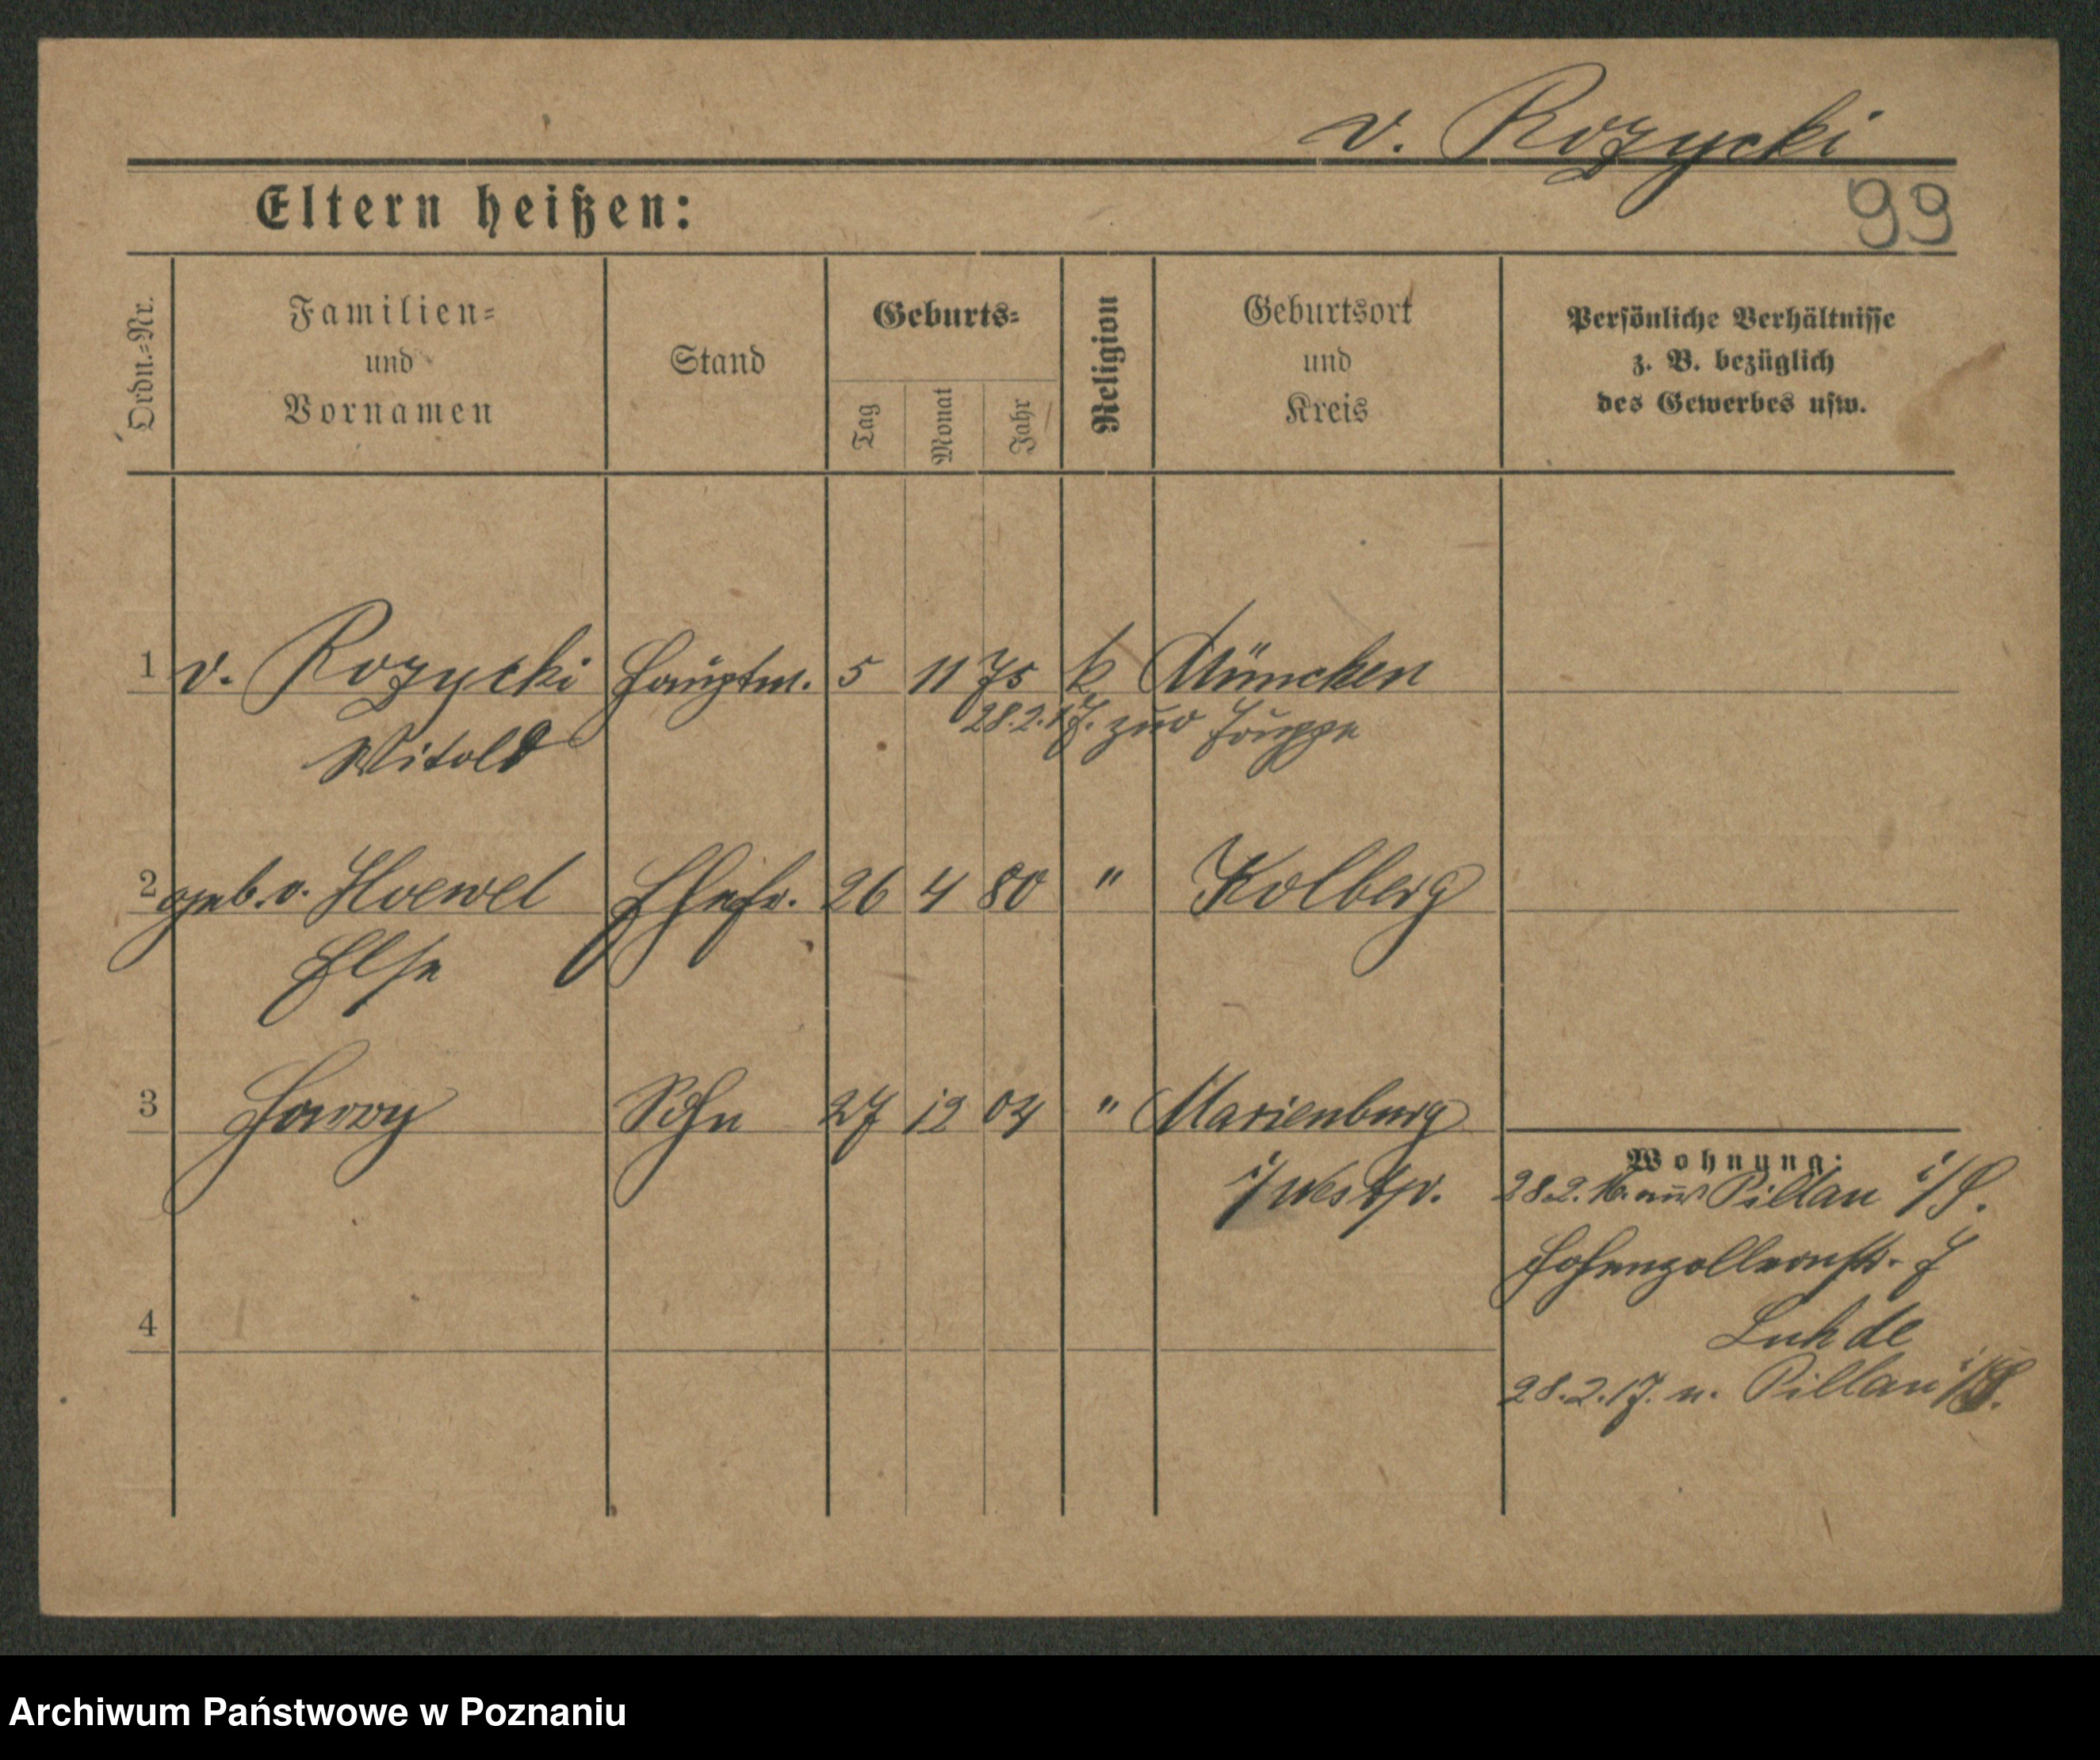 v. Rozycki
Eltern heißen:
99
Ordn.-Nr.
Familien-
und
Vornamen
Stand
Geburts-
Tag
Monat
Jahr
Religion
Geburtsort
und
Kreis
Persönliche Verhältnisse
z. B. bezüglich
des Gewerbes usw.
1 v. Rozycki Hauptm. 5 11 75 k München
28.2.17. zur Truppe
Witold
2 geb. v. Hoewel Ehefr. 26 4 80 " Kolberg
Else
3 Harry Sohn 27 12 04 " Marienburg
i/Westpr.
Wohnung:
28.2.16. aus Pillau
Hohenzollernstr. 7
Luhde
4
28.2.17. n. Pillau
Archiwum Państwowe w Poznaniu